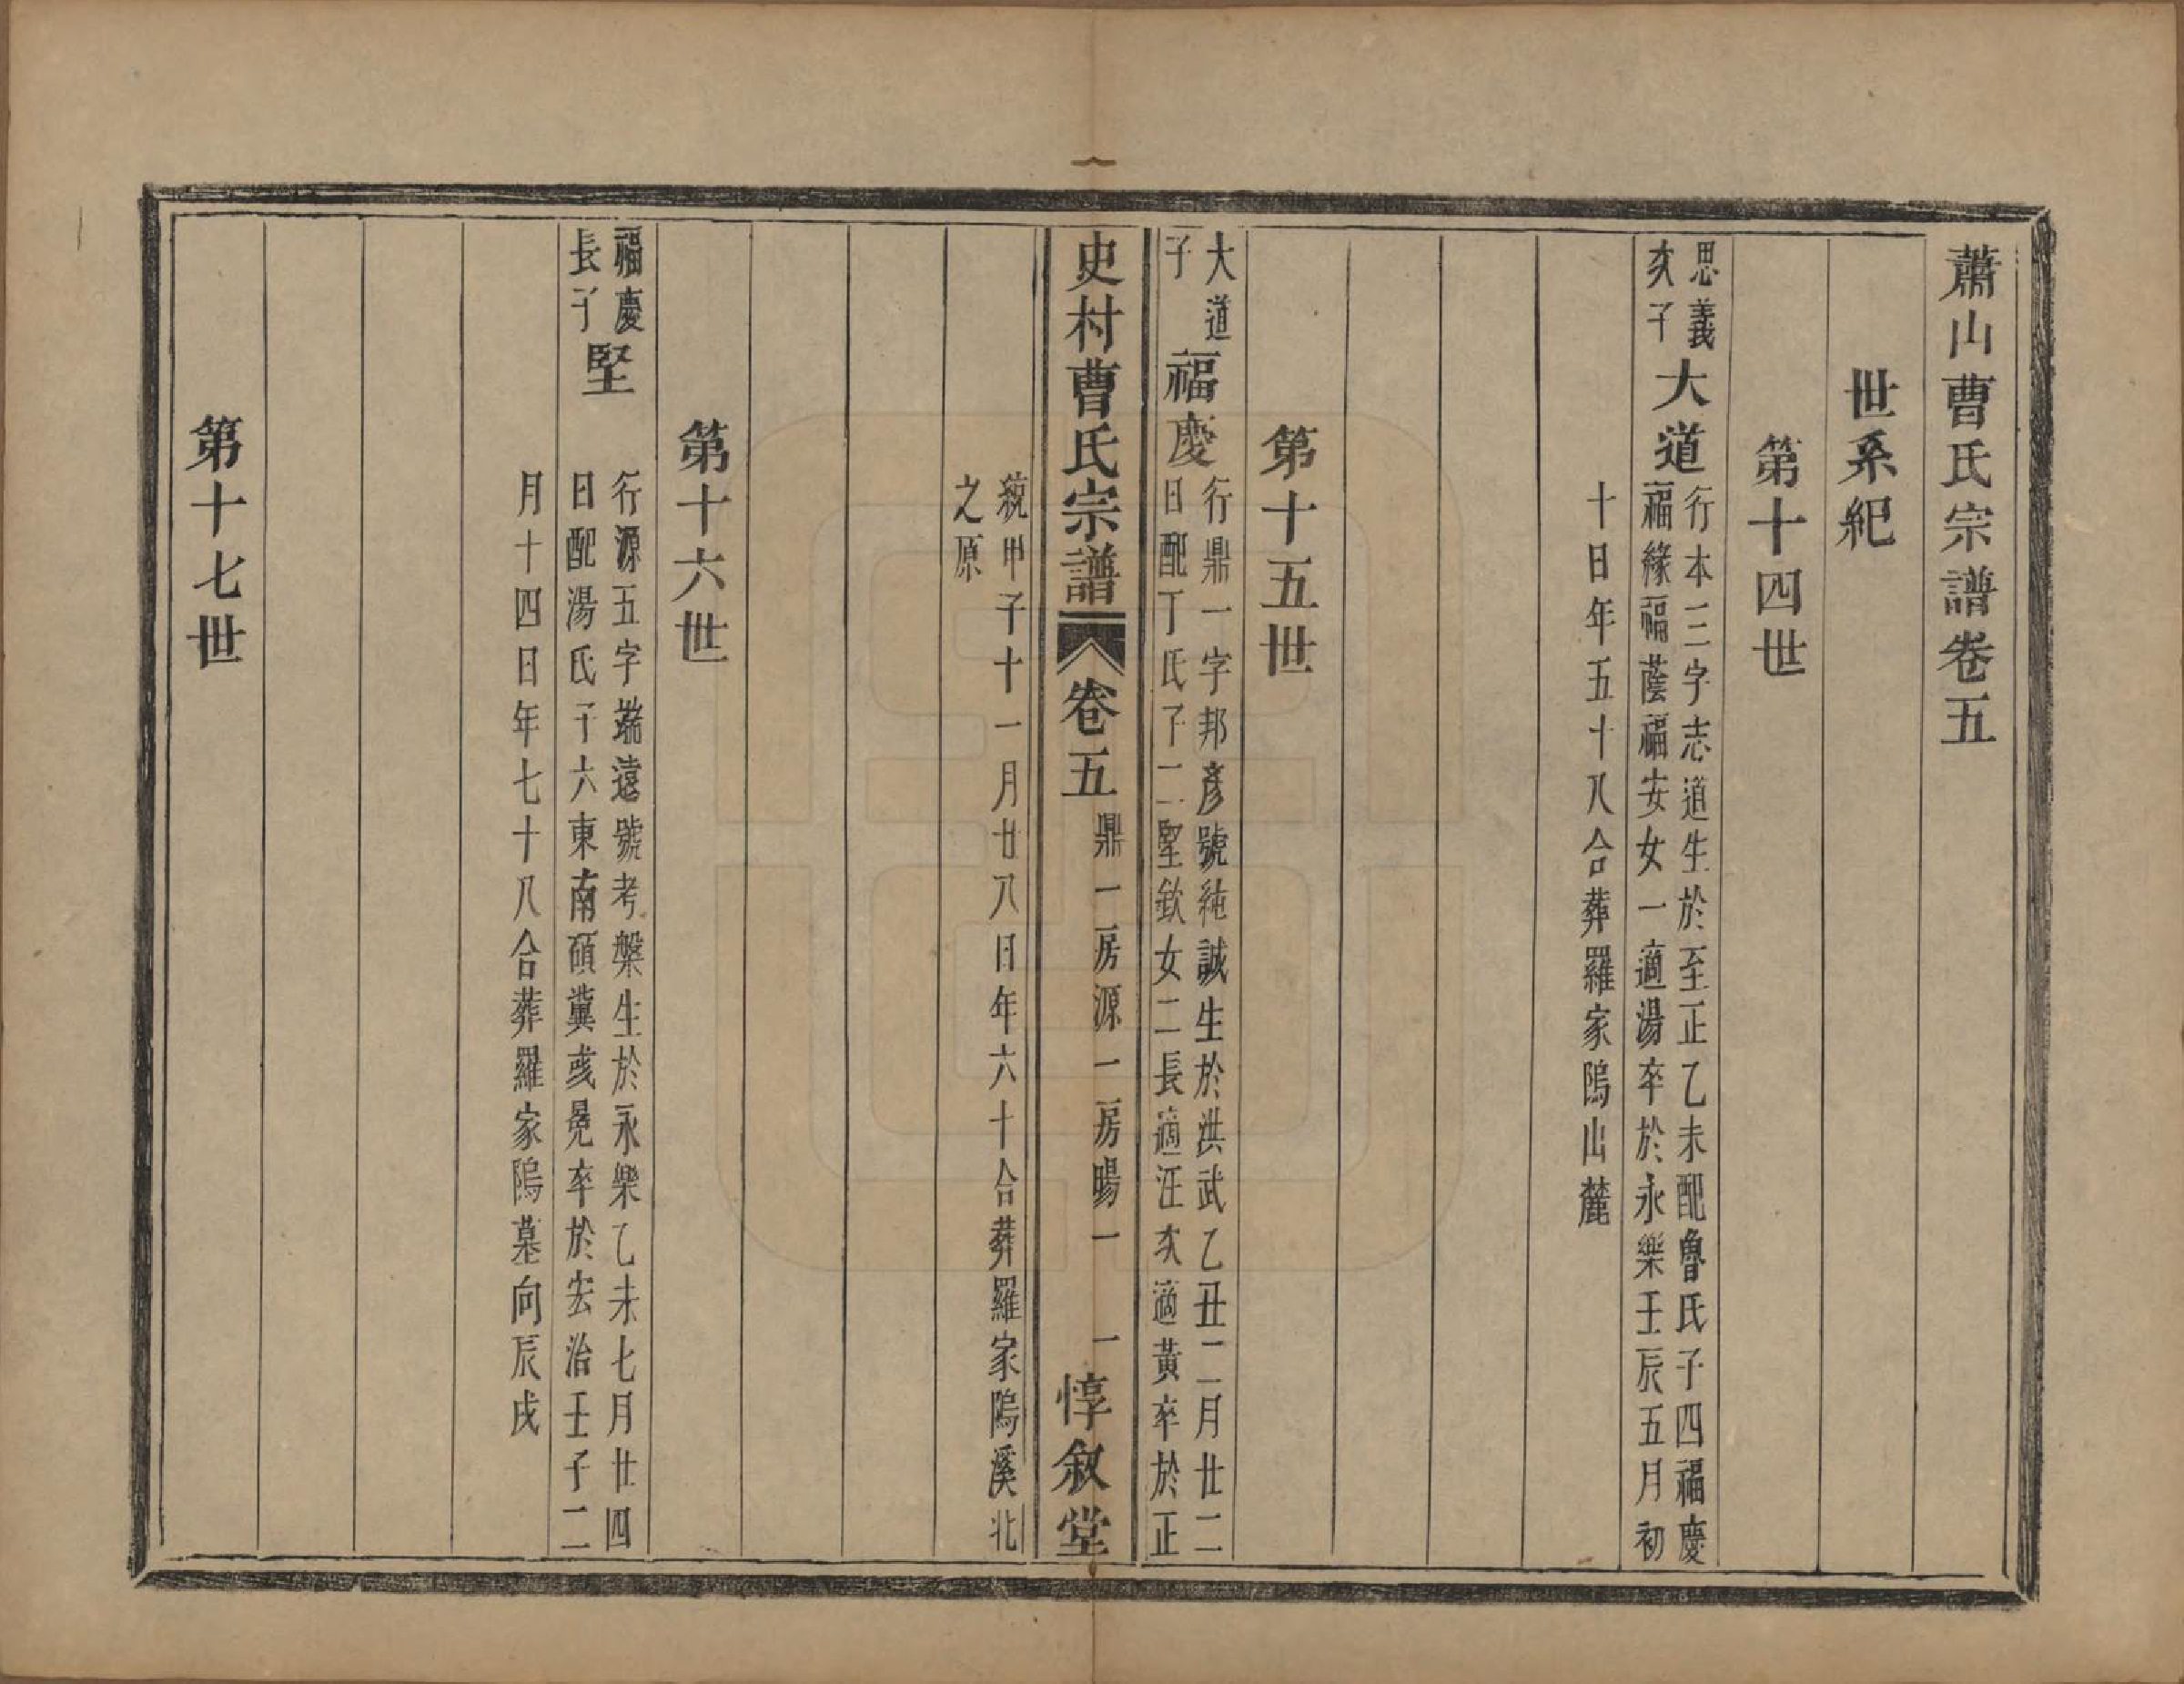 蕭山曹氏宗譜卷五
世系紀
第十四世
思義
次子
大道
行本三字志道生於至正乙未配魯氏子四福慶
福緣福蔭福安女一適湯卒於永樂壬辰五月初
十日年五十八合葬羅家隖山麓
第十五世
大道
子
福慶
行鼎一字邦彥號純誠生於洪武乙丑二月廿二
日配丁氏子二堅欽女二長適汪次適黃卒於正
史村曹氏宗譜
卷五
鼎一房源一房暘一
一
惇敘堂
統甲子十一月廿八日年六十合葬羅家隖溪北
之原
第十六世
福慶
長子
堅
行源五字端遠號考槃生於永樂乙未七月廿四
日配湯氏子六東南碩冀彧冕卒於宏治壬子二
月十四日年七十八合葬羅家隖墓向辰戌
第十七世